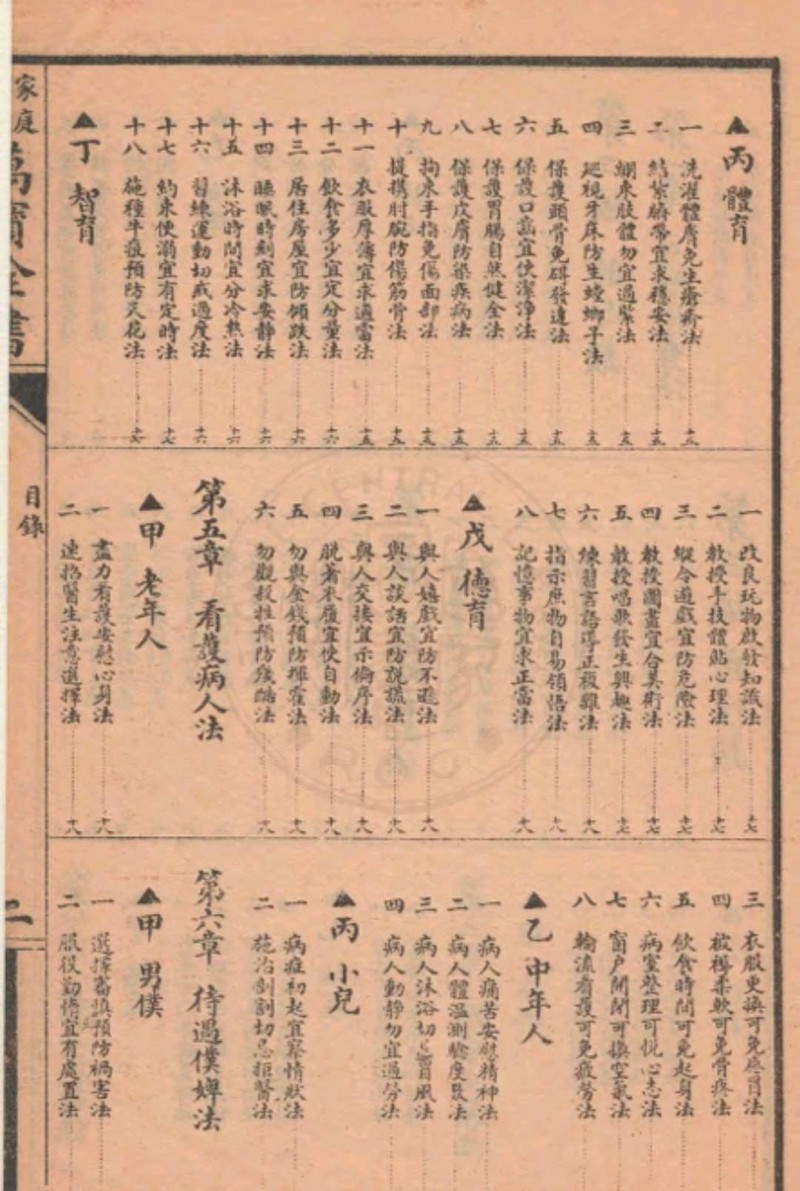 家庭萬寶全書
目錄
二
▲丙 體育
一 洗濯體膚免生瘡疥法 十五
二 結紮臍帶宜求穩妥法 十五
三 綑束肢體勿宜過緊法 十五
四 巡視牙床防生螳螂子法 十五
五 保護頭骨免碍發達法 十五
六 保護口齒宜使潔淨法 十五
七 保護胃腸自然健全法 十五
八 保護皮膚防染疾病法 十五
九 拘束手指免傷面部法 十五
十 提攜肘腕防傷筋骨法 十五
十一 衣服厚薄宜求適當法 十五
十二 飲食多少宜定分量法 十六
十三 居住房屋宜防傾跌法 十六
十四 睡眠時刻宜求安靜法 十六
十五 沐浴時間宜分冷熱法 十六
十六 習練運動切戒過度法 十六
十七 約束便溺宜有定時法 十七
十八 施種牛痘預防天花法 十七
▲丁 智育
一 改良玩物啟發知識法 十七
二 教授手技體貼心理法 十七
三 縱令遊戲宜防危險法 十七
四 教授圖畫宜合美術法 十七
五 教授唱歌發生興趣法 十七
六 練習言語導正複雜法 十八
七 指示庶物自易領悟法 十八
八 記憶事物宜求正當法 十八
▲戊 德育
一 與人嬉戲宜防不遜法 十八
二 與人談話宜防說謊法 十八
三 與人交接宜示倫序法 十八
四 脫著衣履宜使自動法 十八
五 勿與金錢預防揮霍法 十八
六 勿觀殺牲預防殘酷法 十八
第五章 看護病人法
▲甲 老年人
一 盡力看護安慰心身法 十八
二 速招醫生注意選擇法 十八
三 衣服更換可免疼胃法
四 被褥柔軟可免骨疼法
五 飲食時間可免起身法
六 病室整理可悅心志法
七 窗戶開閉可換空氣法
八 輪流看護可免疲勞法
▲乙 中年人
一 病人痛苦安慰精神法
二 病人體溫測驗度數法
三 病人沐浴切忌冒風法
四 病人動靜勿宜過勞法
▲丙 小兒
一 病症初起宜察情狀法
二 施治剖割切忌拒醫法
第六章 待遇僕婢法
▲甲 男僕
一 選擇審慎預防禍害法
二 服役勤惰宜有處置法